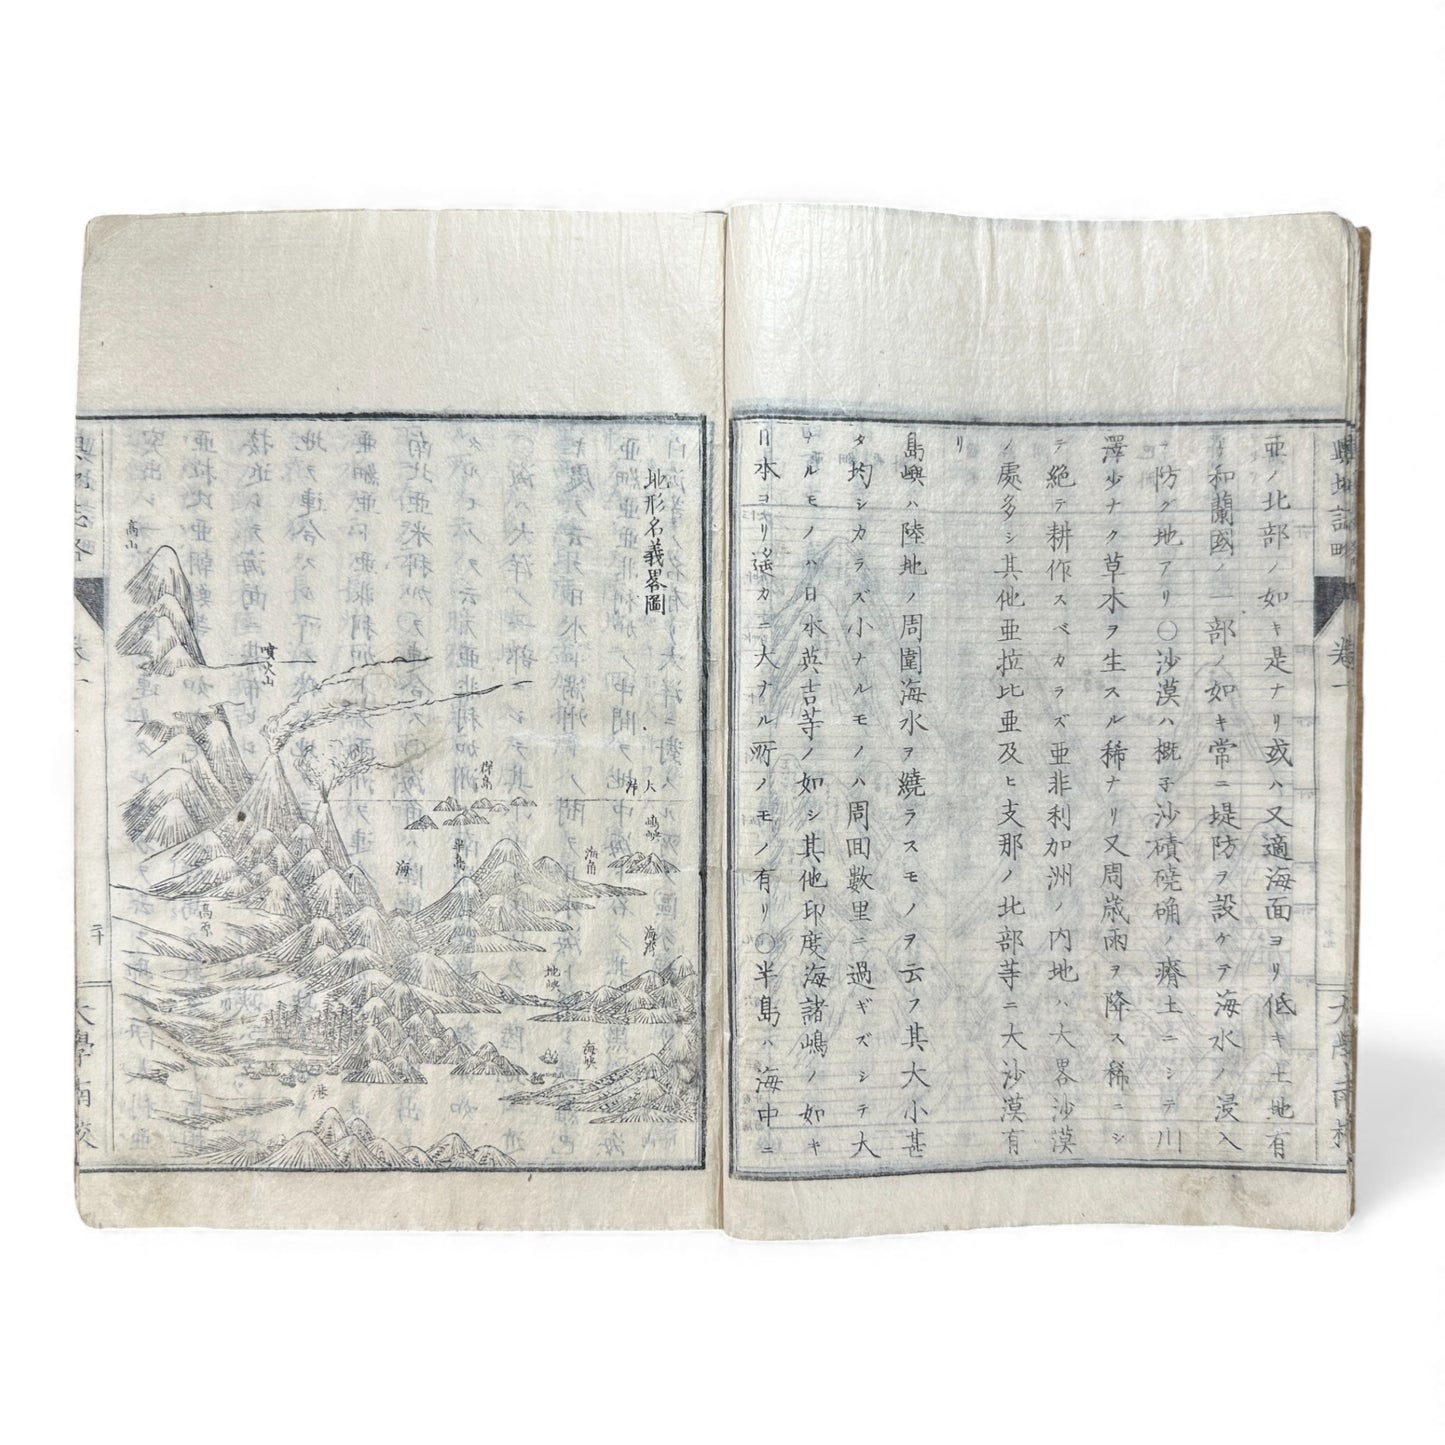 輿地誌略
卷一
大學南校
亜ノ北部ノ如キ是ナリ或ハ又適海面ヨリ低キ土地有
リ和蘭國ノ一部ノ如キ常ニ堤防ヲ設ケテ海水ノ浸入
ヲ防グ地アリ〇沙漠ハ概子沙磧磽确ノ瘠土ニシテ川
澤少ナク草木ヲ生スル稀ナリ又周歳雨ヲ降ス稀ニシ
テ絶テ耕作スベカラズ亜非利加洲ノ内地ハ大畧沙漠
ノ處多シ其他亜拉比亜及ヒ支那ノ北部等ニ大沙漠有
リ
島嶼ハ陸地ノ周圍海水ヲ繞ラスモノヲ云フ其大小甚
タ均シカラズ小ナルモノハ周囬數里ニ過ギズシテ大
ナルモノハ日本英吉等ノ如シ其他印度海諸嶋ノ如キ
日本ヨリ遥カニ大ナル所ノモノ有リ〇半島ハ海中ニ
地形名義畧圖
高山
噴火山
群島
大洋
嶋嶼
半島
海角
海
高原
海湾
地峡
海峡
港
輿地誌略
卷一
二十
大學南校